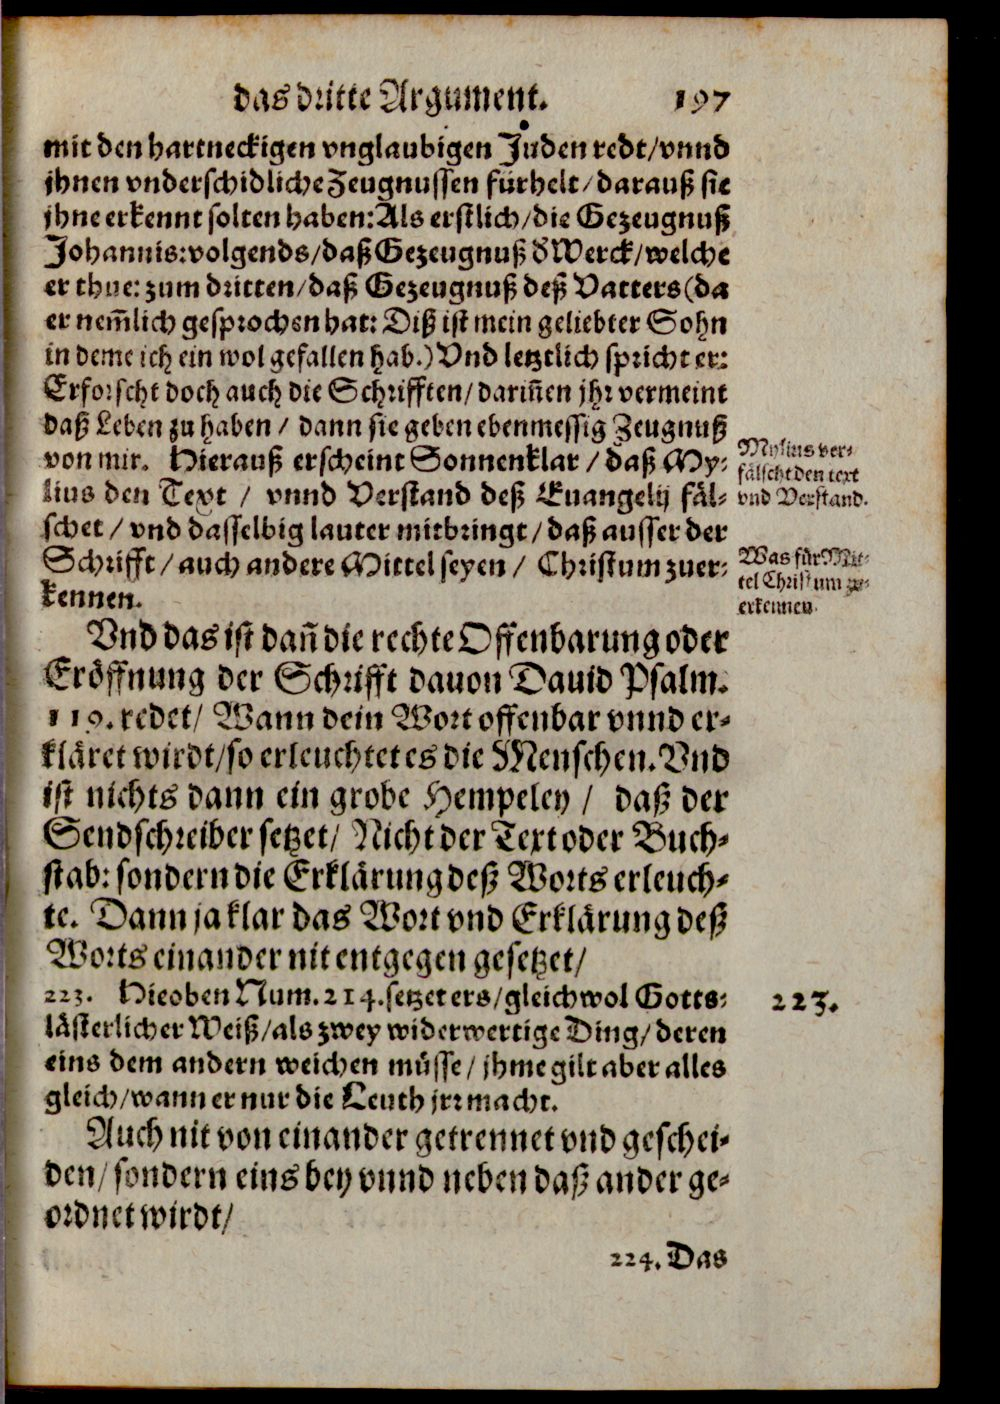 das dritte Argument. 197
mit den hartneckigen vnglaubigen Juden redt/vnnd
jhnen vnderschidliche Zeugnussen fürhelt/darauß sie
jhne erkennt solten haben: Als erstlich/die Gezeugnuß
Johannis: volgends/daß Gezeugnuß d' Werck/welche
er thue: zum dritten/daß Gezeugnuß deß Vatters (da
er nem̃lich gesprochen hat: Diß ist mein geliebter Sohn
in deme ich ein wol gefallen hab.) Vnd letztlich spricht er:
Erforscht doch auch die Schrifften/ darin̄en jhr vermeint
daß Leben zu haben / dann sie geben ebenmessig Zeugnuß
von mir. Hierauß erscheint Sonnenklar / daß My-
lius den Text / vnnd Verstand deß Euangelij fäl-
schet / vnd dasselbig lauter mitbringt/ daß ausser der
Schrifft / auch andere Mittel seyen / Christum zuer-
kennen.
Mylius ver-
fälscht den text
vnd Verstand.
Was für Mit-
tel Christum zu-
erkennen.
Vnd das ist dañ die rechte Offenbarung oder
Eröffnung der Schrifft dauon Dauid Psalm.
119. redet/ Wann dein Wort offenbar vnnd er-
kläret wirdt/so erleuchtet es die Menschen. Vnd
ist nichts dann ein grobe Hempeley / daß der
Sendschreiber setzet/ Nicht der Text oder Buch-
stab: sondern die Erklärung deß Worts erleuch-
te. Dann ja klar das Wort vnd Erklärung deß
Worts einander nit entgegen gesetzet/
223. Hieoben Num. 214. setzet ers/gleichwol Gotts- 223.
lästerlicher Weiß/als zwey widerwertige Ding/ deren
eins dem andern weichen müsse / jhme gilt aber alles
gleich/wann er nur die Leuth jrr macht.
Auch nit von einander getrennet vnd geschei-
den/ sondern eins bey vnnd neben daß ander ge-
ordnet wirdt/
224. Das